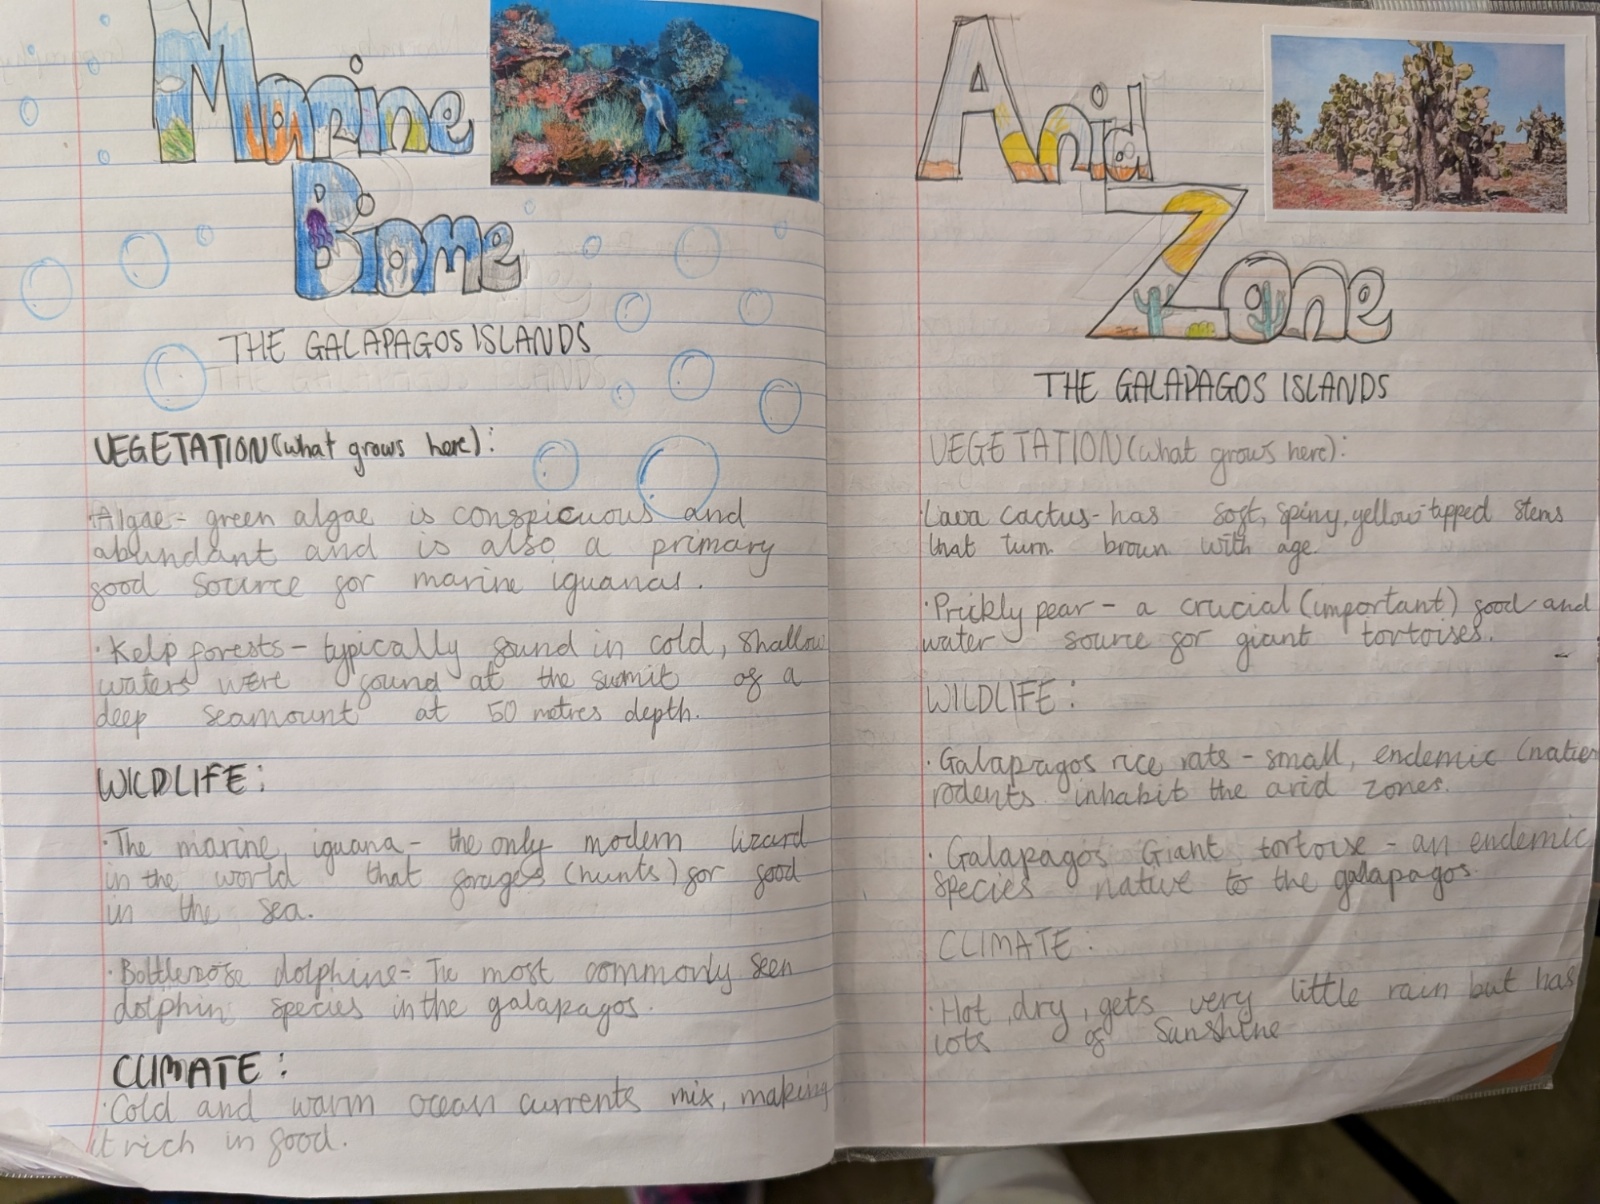 Marine
Biome
THE GALAPAGOS ISLANDS
VEGETATION (what grows here):
Algae - green algae is conspicuous and
abundant and is also a primary
food source for marine iguanas.
· Kelp forests - typically found in cold, shallow
waters were found at the summit of a
deep seamount at 50 metres depth.
WILDLIFE:
· The marine iguana - the only modern lizard
in the world that forages (hunts) for food
in the sea.
· Bottlenose dolphins - The most commonly seen
dolphin species in the galapagos.
CLIMATE:
· Cold and warm ocean currents mix, making
it rich in food.
Arid
Zone
THE GALAPAGOS ISLANDS
VEGETATION (what grows here):
· Lava cactus - has soft, spiny, yellow tipped stems
that turn brown with age.
· Prickly pear - a crucial (important) food and
water source for giant tortoises.
WILDLIFE:
· Galapagos rice rats - small, endemic
rodents inhabit the arid zones.
· Galapagos Giant tortoise - an endemic
species native to the galapagos.
CLIMATE:
· Hot, dry, gets very little rain but has
lots of Sunshine